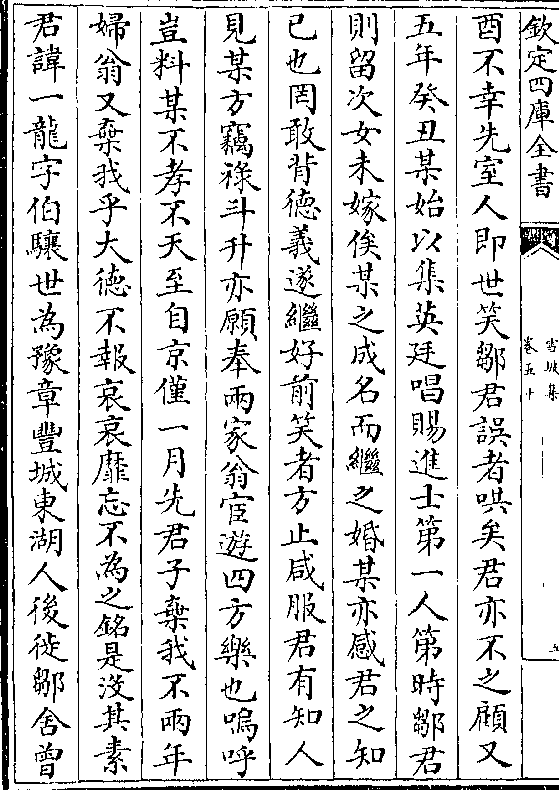 欽定四庫全書
雪坡集
卷五十
五
酉不幸先室人即世笑鄒君誤者哄矣君亦不之顧又
五年癸丑某始以集英廷唱賜進士第一人第時鄒君
則留次女未嫁俟某之成名而繼之婚某亦感君之知
己也罔敢背德義遂繼好前笑者方止咸服君有知人
見某方竊祿斗升亦願奉兩家翁宦遊四方樂也嗚呼
豈料某不孝不天至自京僅一月先君子棄我不兩年
婦翁又棄我乎大德不報哀哀靡忘不為之銘是沒其素
君諱一龍字伯驤世為豫章豐城東湖人後徙鄒舍曾